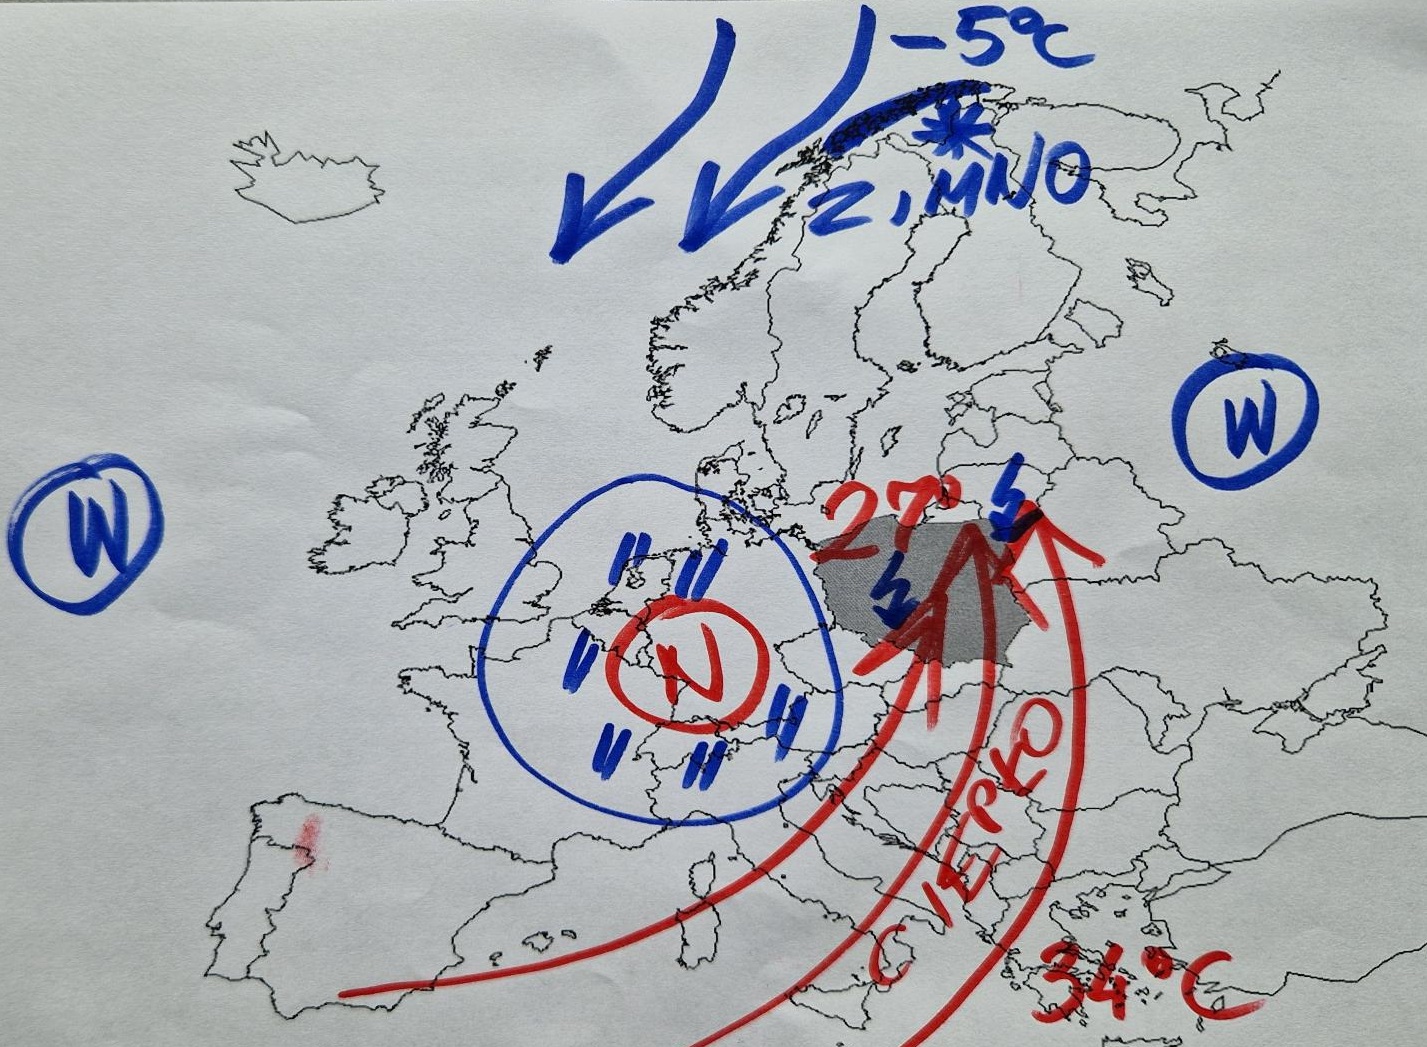 -5°C
ZIMNO
W
W
27°
N
CIEPŁO
34°C